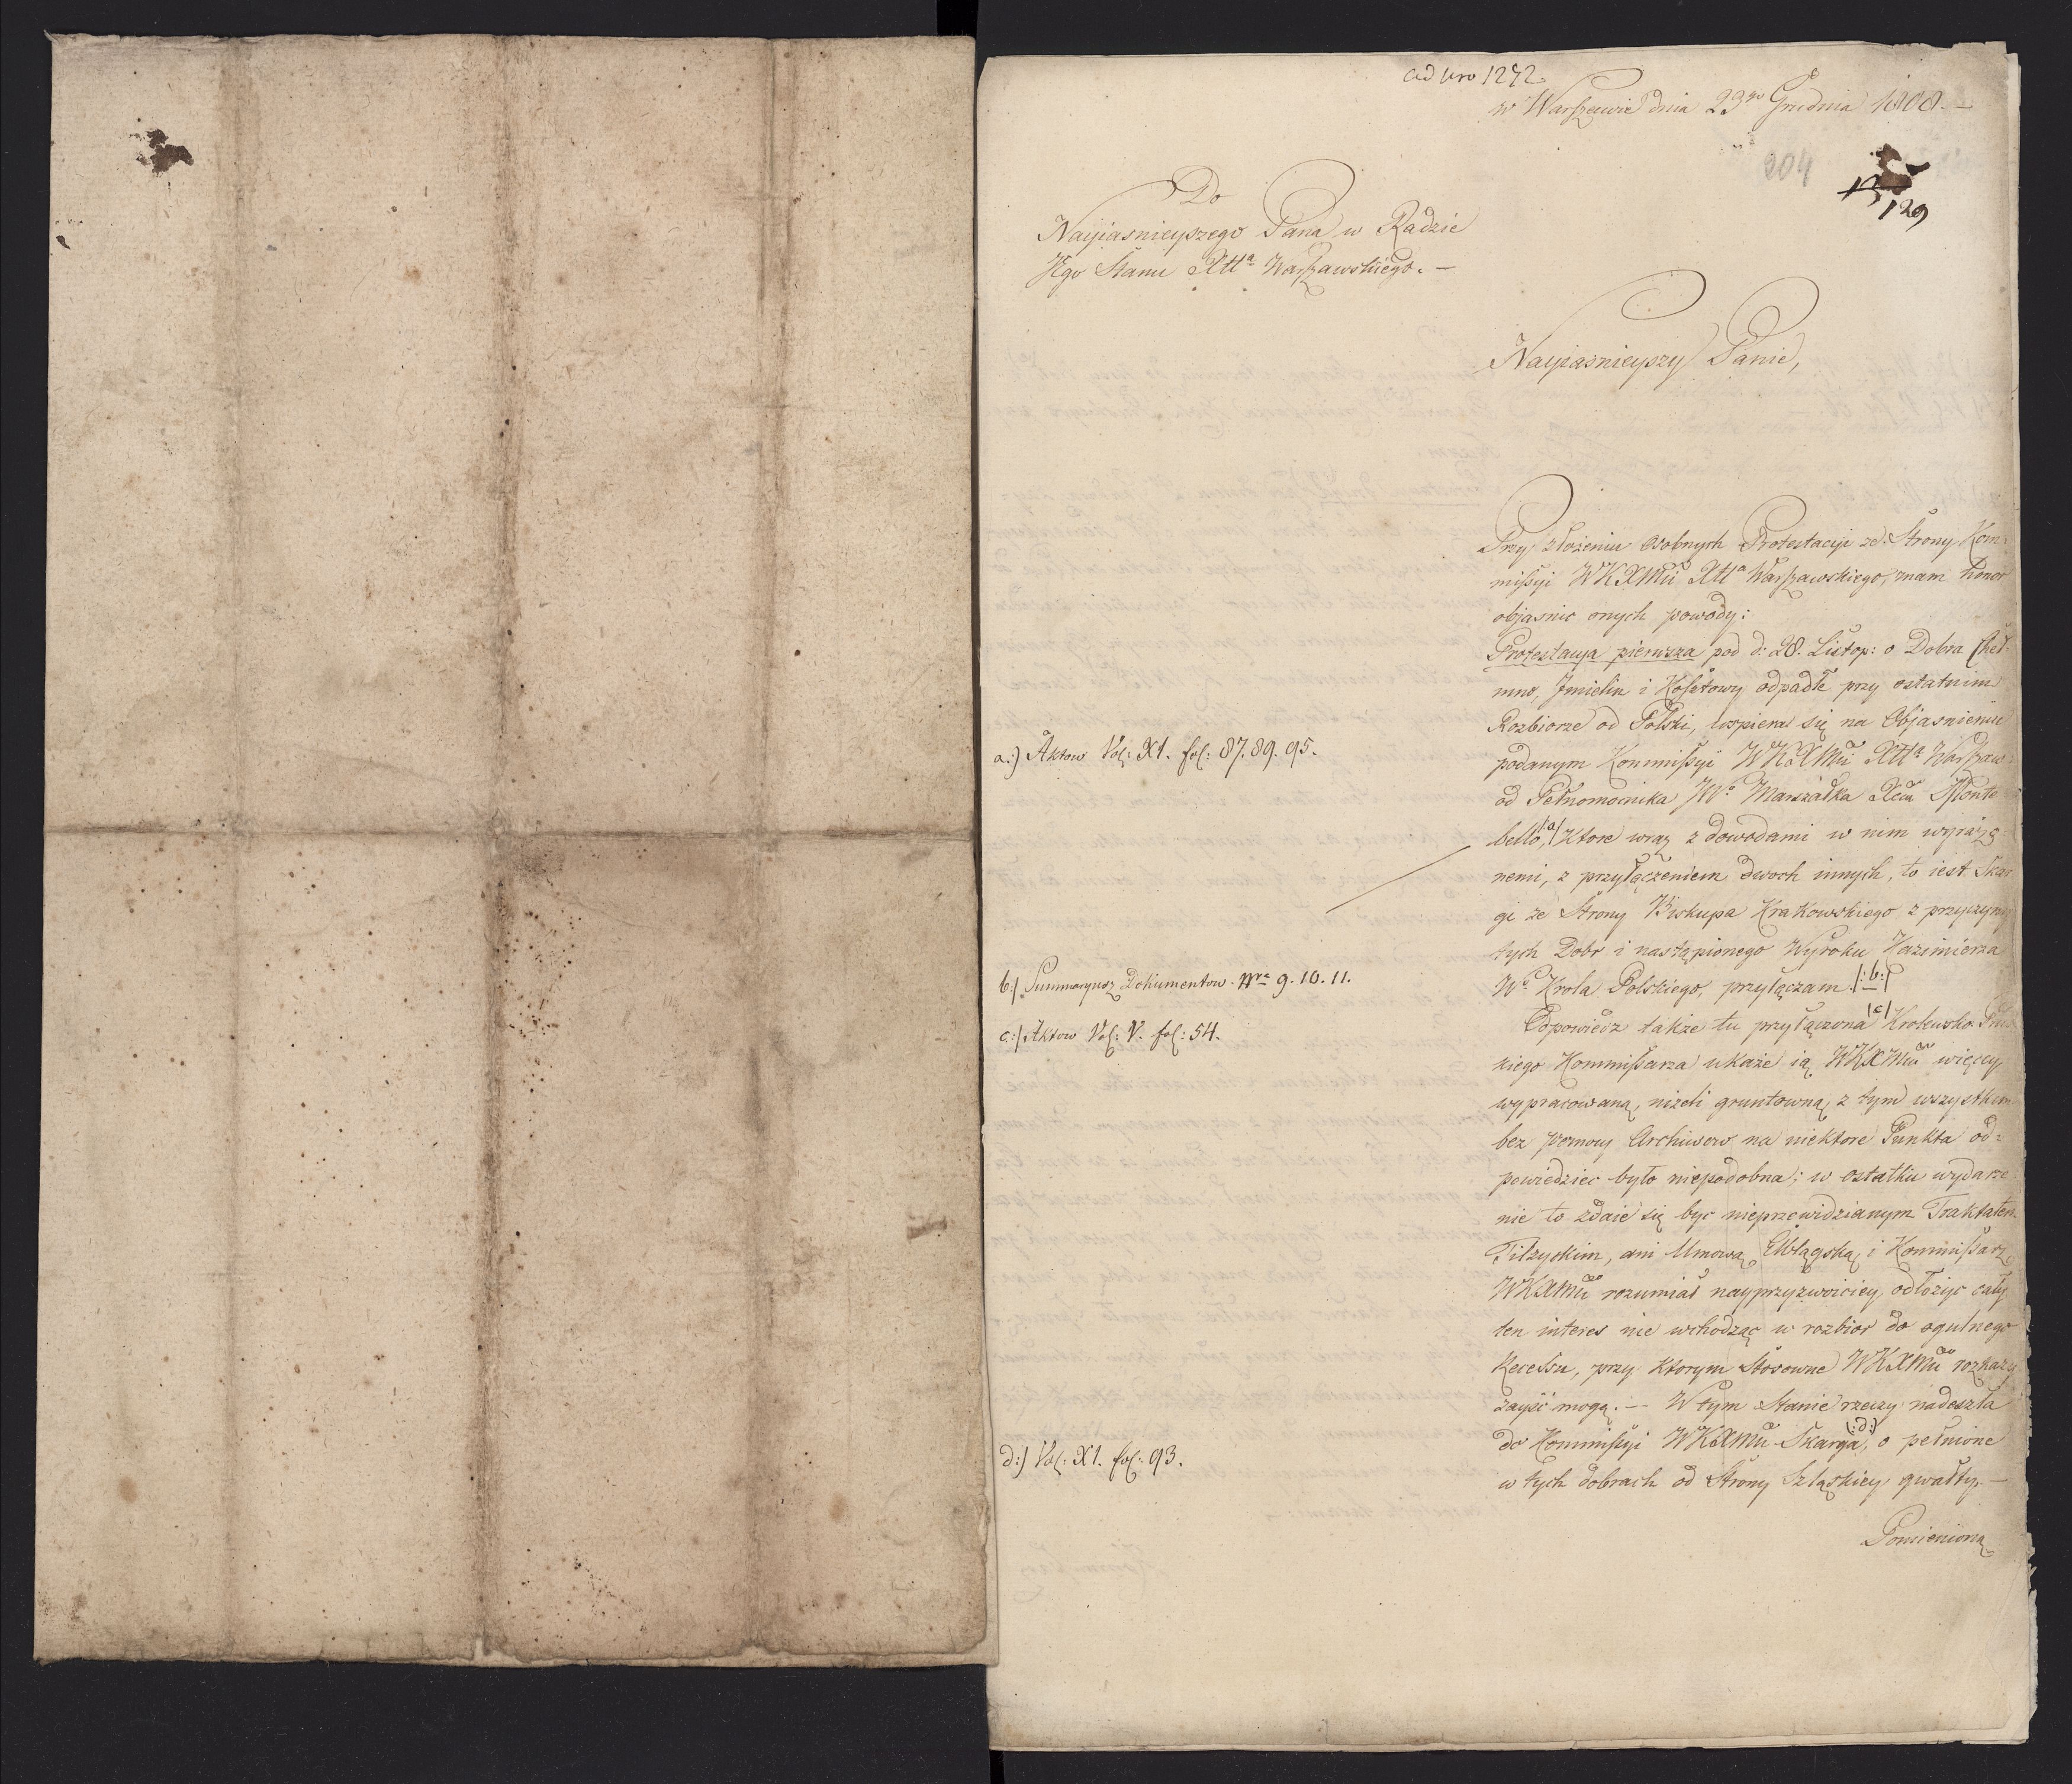 ad Nro 1272.
w Warszawie dnia 23go Grudnia 1808. —
204
129
Do
Nayiasnieyszego Pana w Radzie
Jego Stanu Xtta Warszawskiego. —
Nayiasnieyszy Panie,
Przy złożeniu osobnych Protestacyi ze Strony Kom:
missyi WKXMci Xtta Warszawskiego, mam honor
objasnic onych powody:
Protestacya pierwsza pod d: 28. Listop: o Dobra Cheł:
mno, Jmielin i Kosztowy odpadłe przy ostatnim
Rozbiorze od Polski, wspiera się na Objasnieniu
a:) Aktow Vol: XI. fol: 87. 89. 95.
podanym Kommissyi WKXMci Xtta Warszaw:
od Pełnomocnika JWo Marszałka Xcia Monte
bello, /:a:/ Ktore wraz z dowodami w nim wyrażo:
nemi, z przyłączeniem dwoch innych, to iest Skar
gi ze Strony Biskupa Krakowskiego z przyczyny
tych Dobr i nastąpionego Wyroku Kazimierza
b:/ Summaryusz Dokumentow Nro 9. 10. 11.
Wo Krola Polskiego, przyłączam /:b:/
c:/ Aktow Vol: V. fol: 54.
Odpowiedz także tu przyłączona /c/ Krolewsko Prus
kiego Kommissarza ukaże ią WKXMci więcey
wypracowaną, niżeli gruntowną, z tym wszystkim
bez pomocy Archiwow na niektore Punkta od=
powiedziec było niepodobna; w ostatku wydarze
nie to zdaie się byc nieprzewidzianym Traktatem
Tilzyckim, ani Umową Elblągską, i Kommissarz
WKXMci rozumiał nayprzyzwoiciey odłożyc cały
ten interes nie wchodząc w rozbior do ogulnego
Recessu, przy ktorym stosowne WKXMci rozkazy
zayść mogą. — W tym Stanie rzeczy nadeszła
d:) Vol: XI. fol: 93.
do Kommissyi WKXMci Skarga, /:d:/ o pełnione
w tych dobrach od Strony Szląskiey gwałty. —
Pomienioną